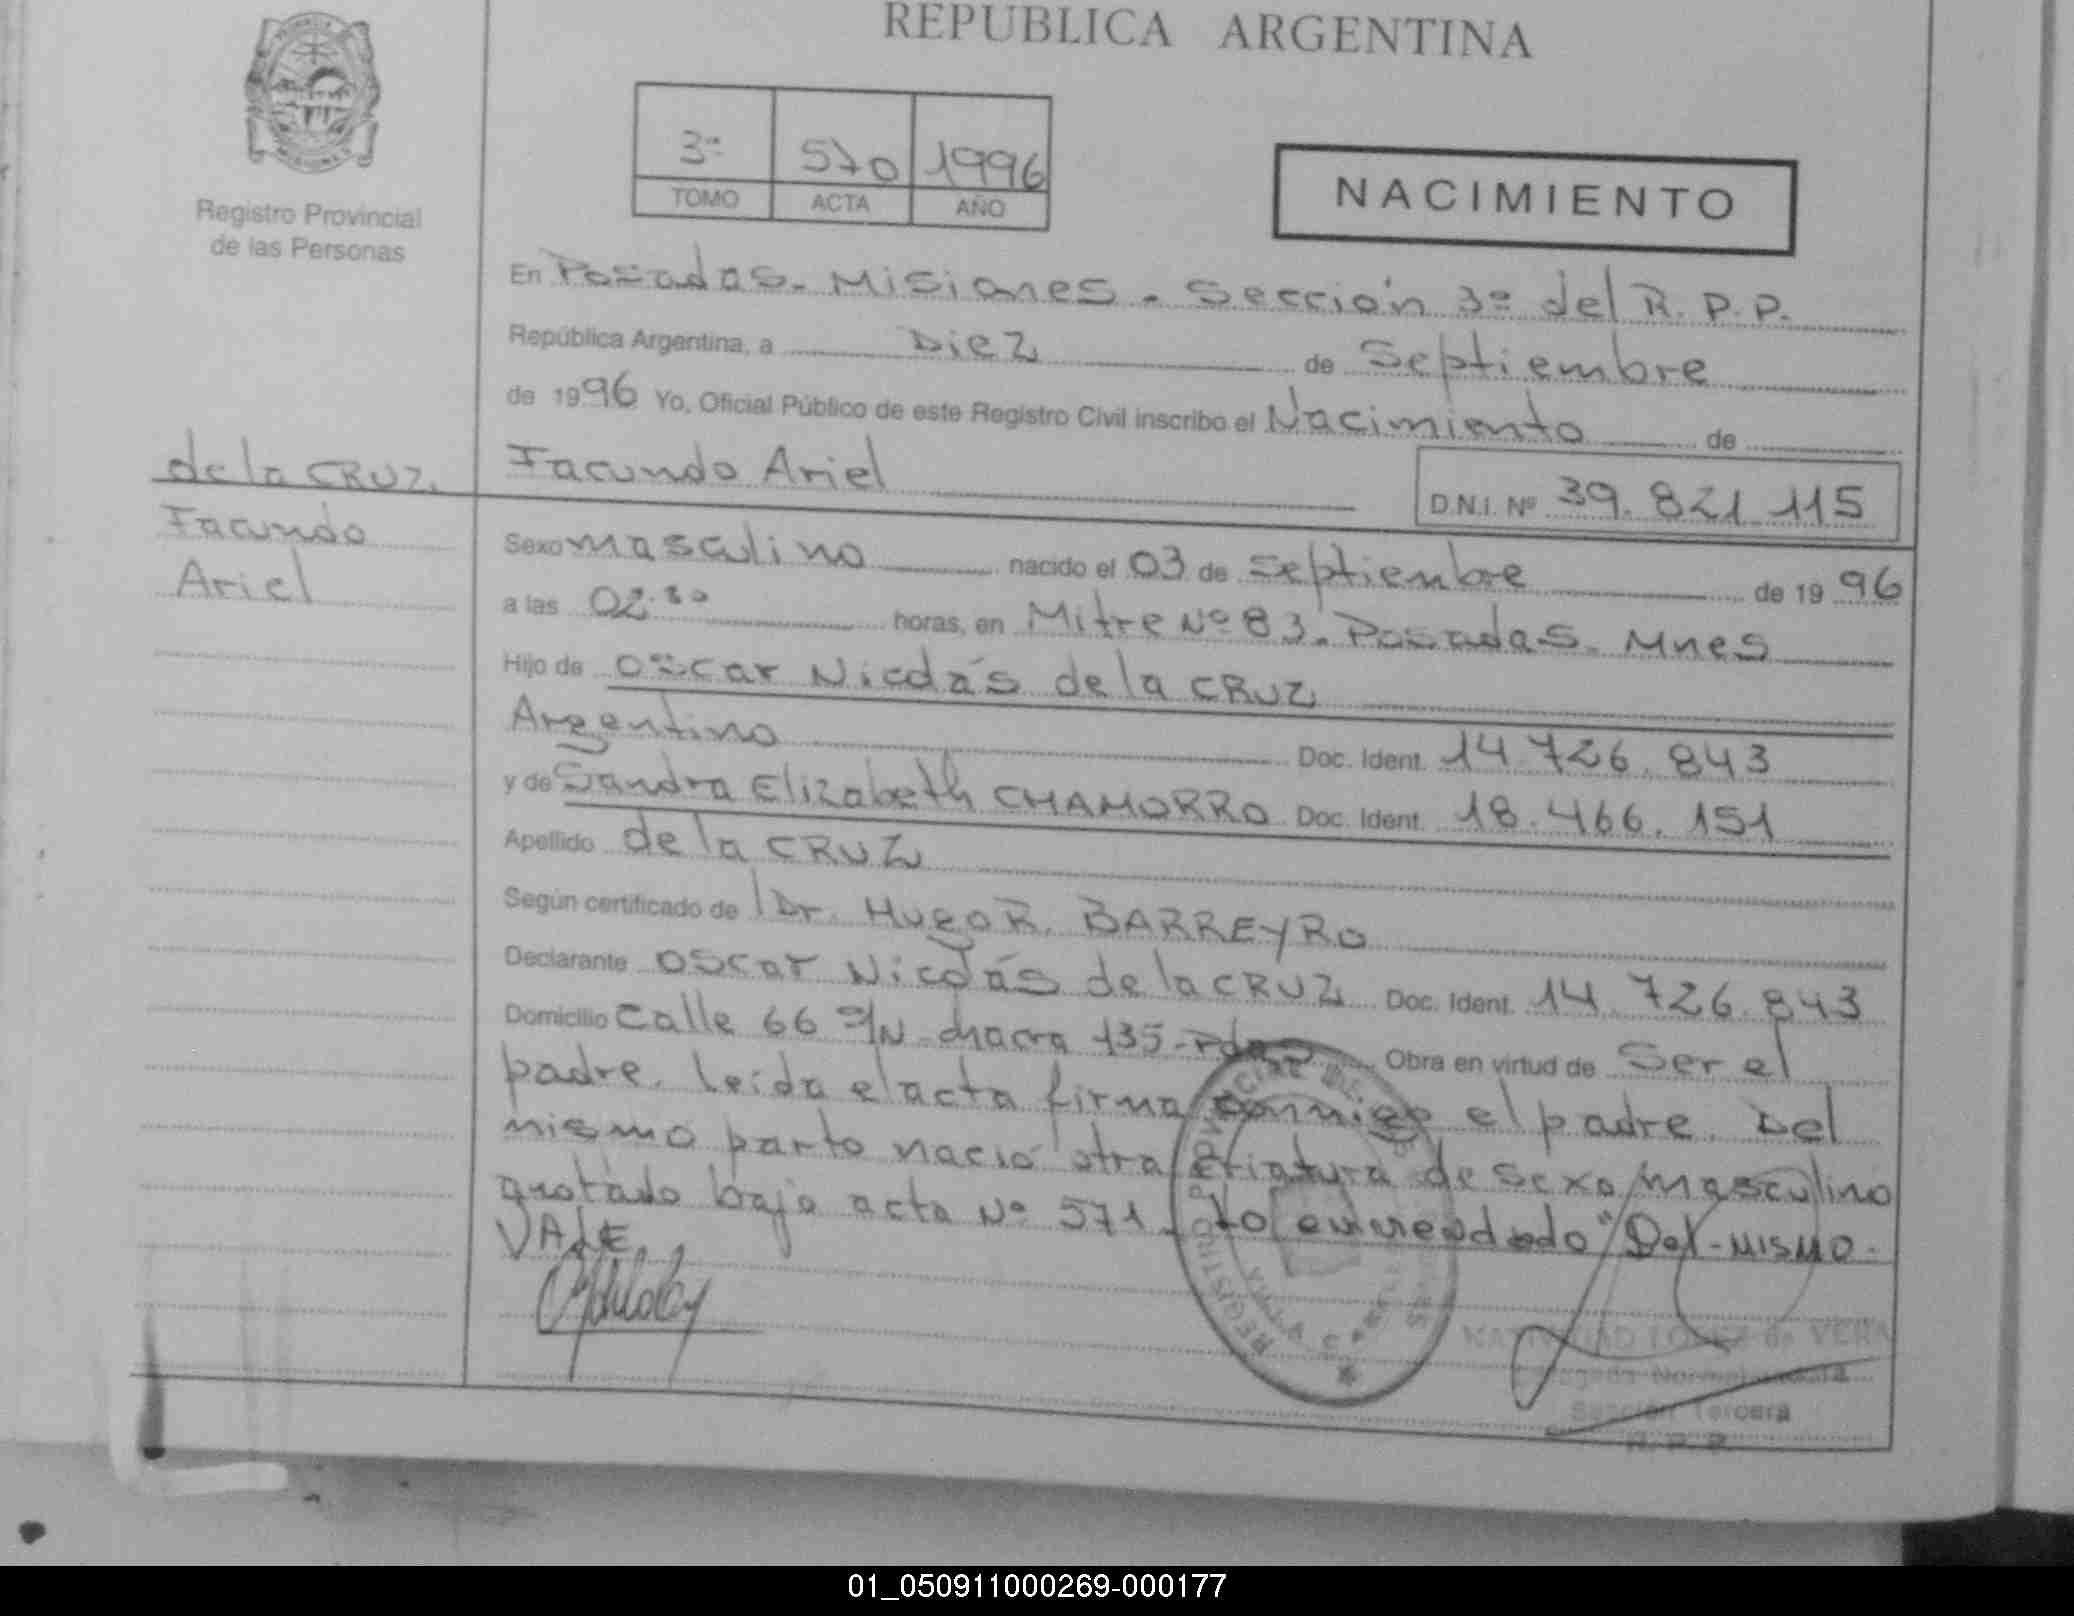 REPUBLICA ARGENTINA
3ª 570 1996
TOMO ACTA AÑO
NACIMIENTO
Registro Provincial
de las Personas
En Posadas - Misiones - Sección 3ª del R. P. P.
República Argentina, a Diez de Septiembre
de 1996 Yo, Oficial Público de este Registro Civil inscribo el Nacimiento de
de la CRUZ Facundo Ariel D.N.I. Nº 39.821.115
Facundo
Ariel
Sexo masculino nacido el 03 de Septiembre de 1996
a las 02.30 horas, en Mitre Nº 83. Posadas. Mnes
Hijo de Oscar Nicolás de la CRUZ
Argentino Doc. Ident. 14.726.843
y de Sandra Elizabeth CHAMORRO Doc. Ident. 18.466.151
Apellido de la CRUZ
Según certificado de l Dr. Hugo R. BARREYRO
Declarante Oscar Nicolás de la CRUZ Doc. Ident. 14.726.843
Domicilio Calle 66 s/N chacra 135 - Pdas Obra en virtud de Ser el
padre. Leída el acta firma conmigo el padre. Del
mismo parto nació otra criatura de sexo masculino
anotado bajo acta Nº 571. Lo enmendado "Del - mismo.
VALE.
REGISTRO PROVINCIAL DE
LOPEZ de VERA
Sección Tercera
R. P. P.
01_050911000269-000177